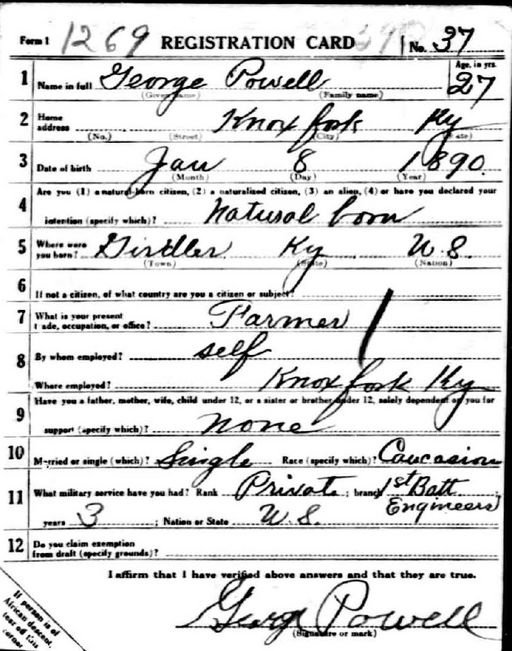 Form 1 1269 REGISTRATION CARD No. 37
1 Name in full George Powell Age, in yrs. 27
(Given name) (Family name)
2 Home address Knox fork Ky
(No.) (Street) (City) (State)
3 Date of birth Jan 8 1890.
(Month) (Day) (Year)
4 Are you (1) a natural-born citizen, (2) a naturalized citizen, (3) an alien, (4) or have you declared your
intention (specify which)? Natural born
5 Where were you born? Girdler Ky U.S.
(Town) (State) (Nation)
6 If not a citizen, of what country are you a citizen or subject?
7 What is your present trade, occupation, or office? Farmer
8 By whom employed? self
Where employed? Knox fork Ky
9 Have you a father, mother, wife, child under 12, or a sister or brother under 12, solely dependent on you for
support (specify which)? none
10 Married or single (which)? Single Race (specify which)? Caucasion
11 What military service have you had? Rank Private ; branch 1st Batt Engineers
years 3 ; Nation or State U.S.
12 Do you claim exemption
from draft (specify grounds)?
I affirm that I have verified above answers and that they are true.
George Powell
(Signature or mark)
If person is of
African descent,
tear off this
corner